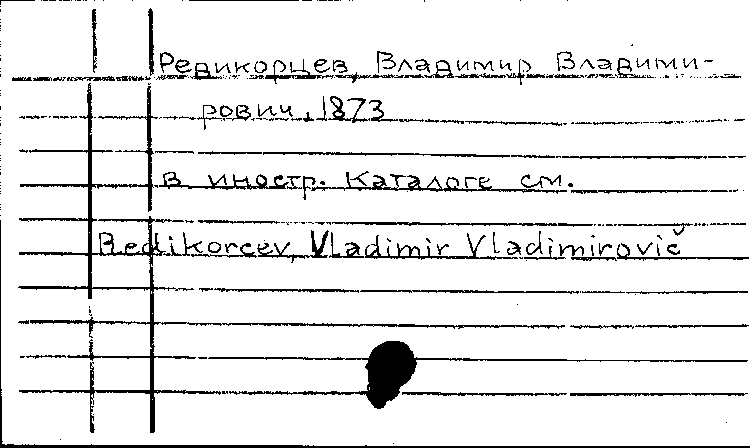 Редикорцев, Владимир Владими-
рович, 1873
в иностр. каталоге см.
Redikorcev, Vladimir Vladimirovič